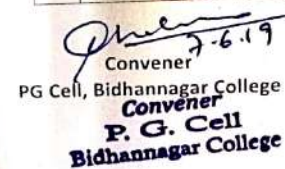 7-6.19
Convener
PG Cell, Bidhannagar College
Convener
P. G. Cell
Bidhannagar College